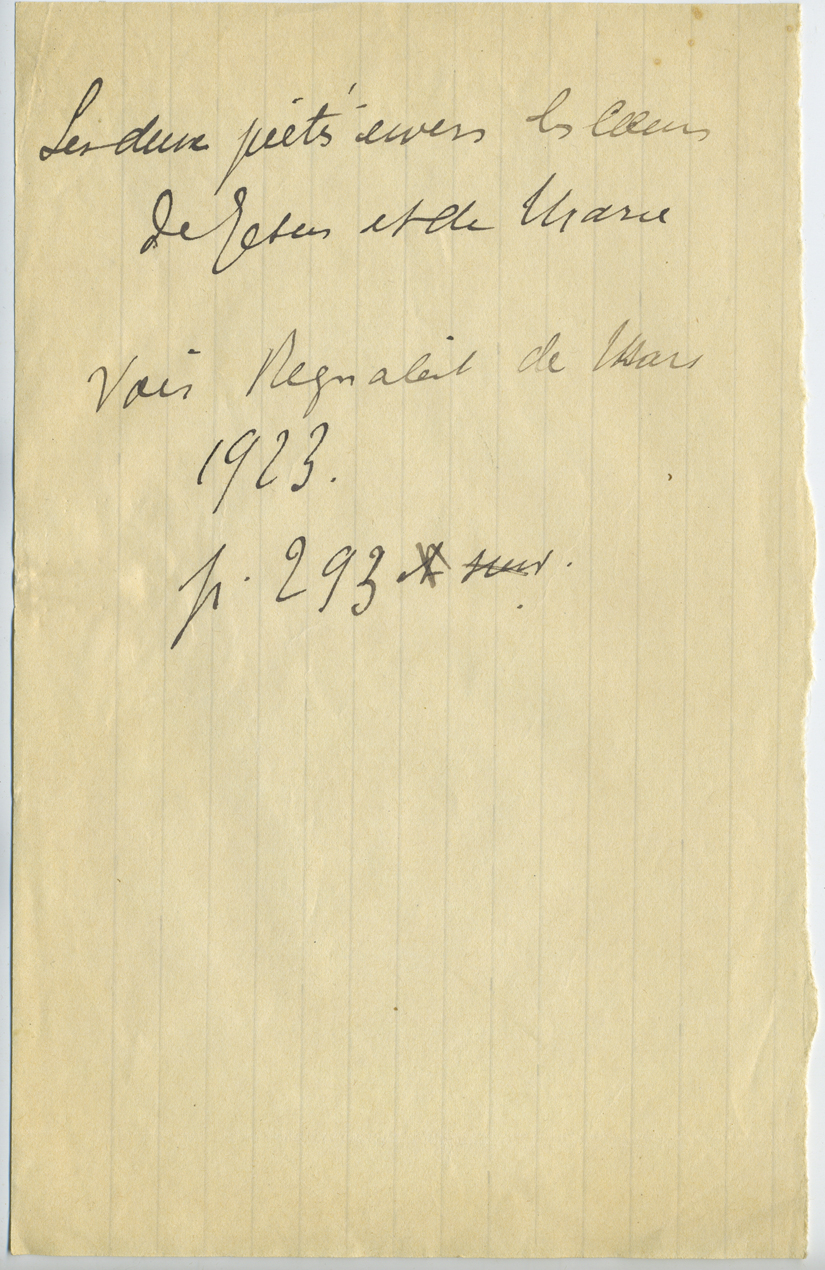 Les deux piétés envers les Cœurs
de Jesus et de Marie
Voir Regnabit de Mars
1923.
p. 293 et suiv.